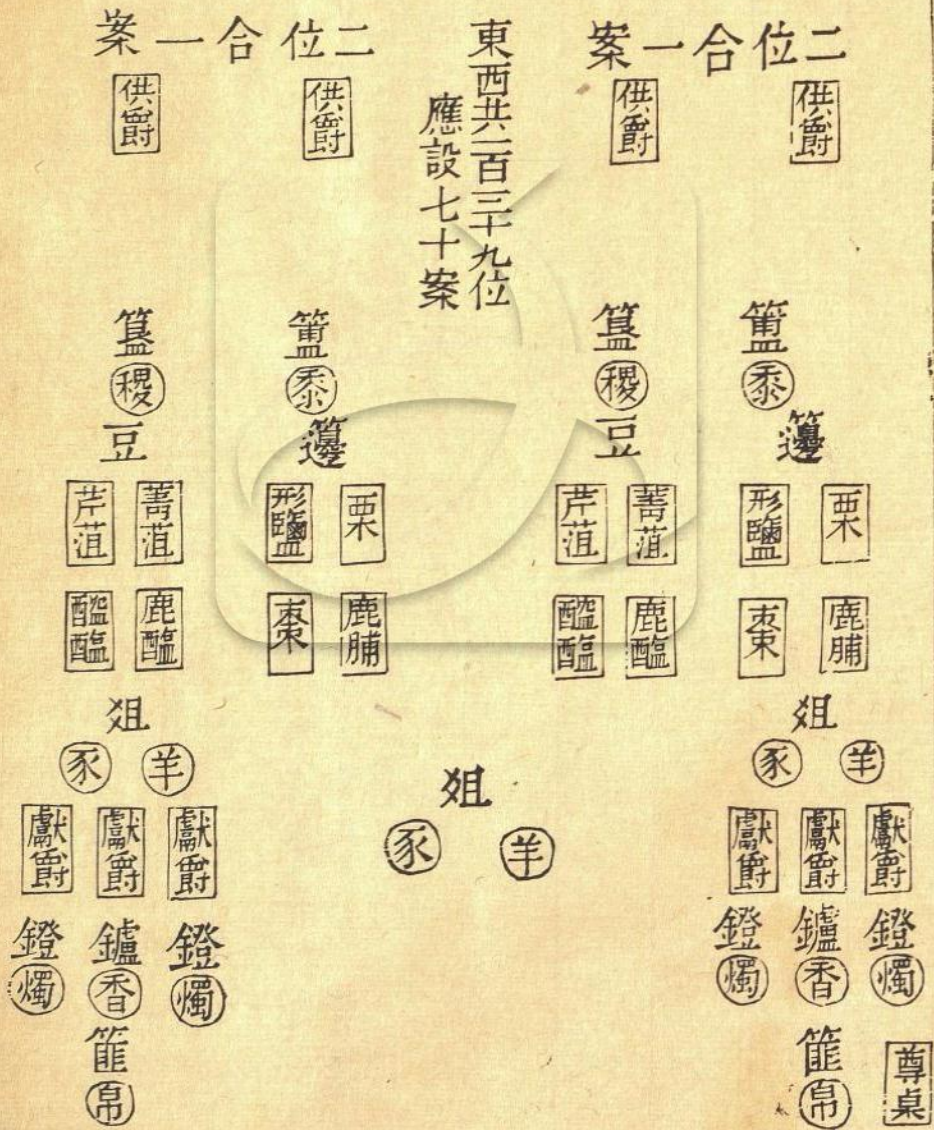 二位合一案
供爵
供爵
簠
黍
簋
稷
籩
豆
栗
形鹽
菁菹
芹菹
鹿脯
棗
鹿醢
醓醢
俎
羊
豕
獻爵
獻爵
獻爵
鐙
燭
鑪
香
鐙
燭
尊桌
篚
帛
東西共一百三十九位
應設七十案
俎
羊
豕
二位合一案
供爵
供爵
簠
黍
簋
稷
籩
豆
栗
形鹽
菁菹
芹菹
鹿脯
棗
鹿醢
醓醢
俎
羊
豕
獻爵
獻爵
獻爵
鐙
燭
鑪
香
鐙
燭
篚
帛